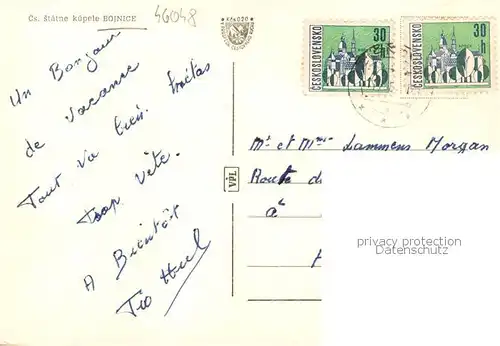 Čs. štátne kúpele BOJNICE
46048
Un Bonjour
de vacance
Tout va bien.
Trop vite.
A Bientôt
ČESKOSLOVENSKO
30
h
ČESKOSLOVENSKO
30
h
VPL
Mr et Mme Lammens Morgan
Route d
à
privacy protection
Datenschutz